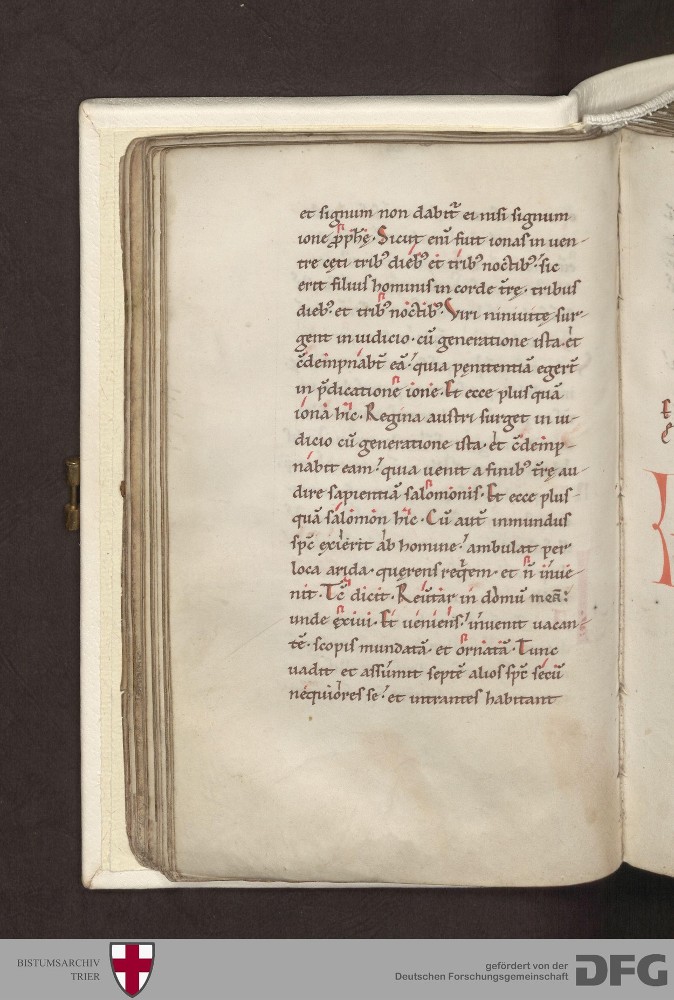 et signum non dabit᷑ ei nisi signum
ione ꝓph̅ę. Sicut eni̅ fuit ionas in uen-
tre cęti trib; dieb; et trib; noctib; sic
erit filius hominis in corde t̅rę. tribus
dieb; et trib; noctib;. Viri niniuitę sur-
gent in iudicio. cu̅ generatione ista. et
c̅de̅pnabt̅ ea̅. quia pęnitentia̅ egert̅
in p̅dicatione ionie. Et ecce plus qua̅
iona hic. Regina austri surget in iu-
dicio cu̅ generatione ista. et c̅demp-
nabit eam. quia uenit a finib; t̅rę au-
dire sapientia̅ salomonis. Et ecce plus
qua̅ salomon hic. Cu̅ aut̅ inmundus
sp̅c exierit ab homine. ambulat per
loca arida. querens req̅em. et n̅ inue-
nit. T̅c dicit. Reuertar in domu̅ mea̅.
unde exiui. Et ueniens. inuenit uacan-
te̅. scopis mundata̅. et ornata̅. Tunc
uadit et assumit septe̅ alios sp̅c secu̅
nequiores se. et intrantes habitant
BISTUMSARCHIV
TRIER
gefördert von der
Deutschen Forschungsgemeinschaft
DFG